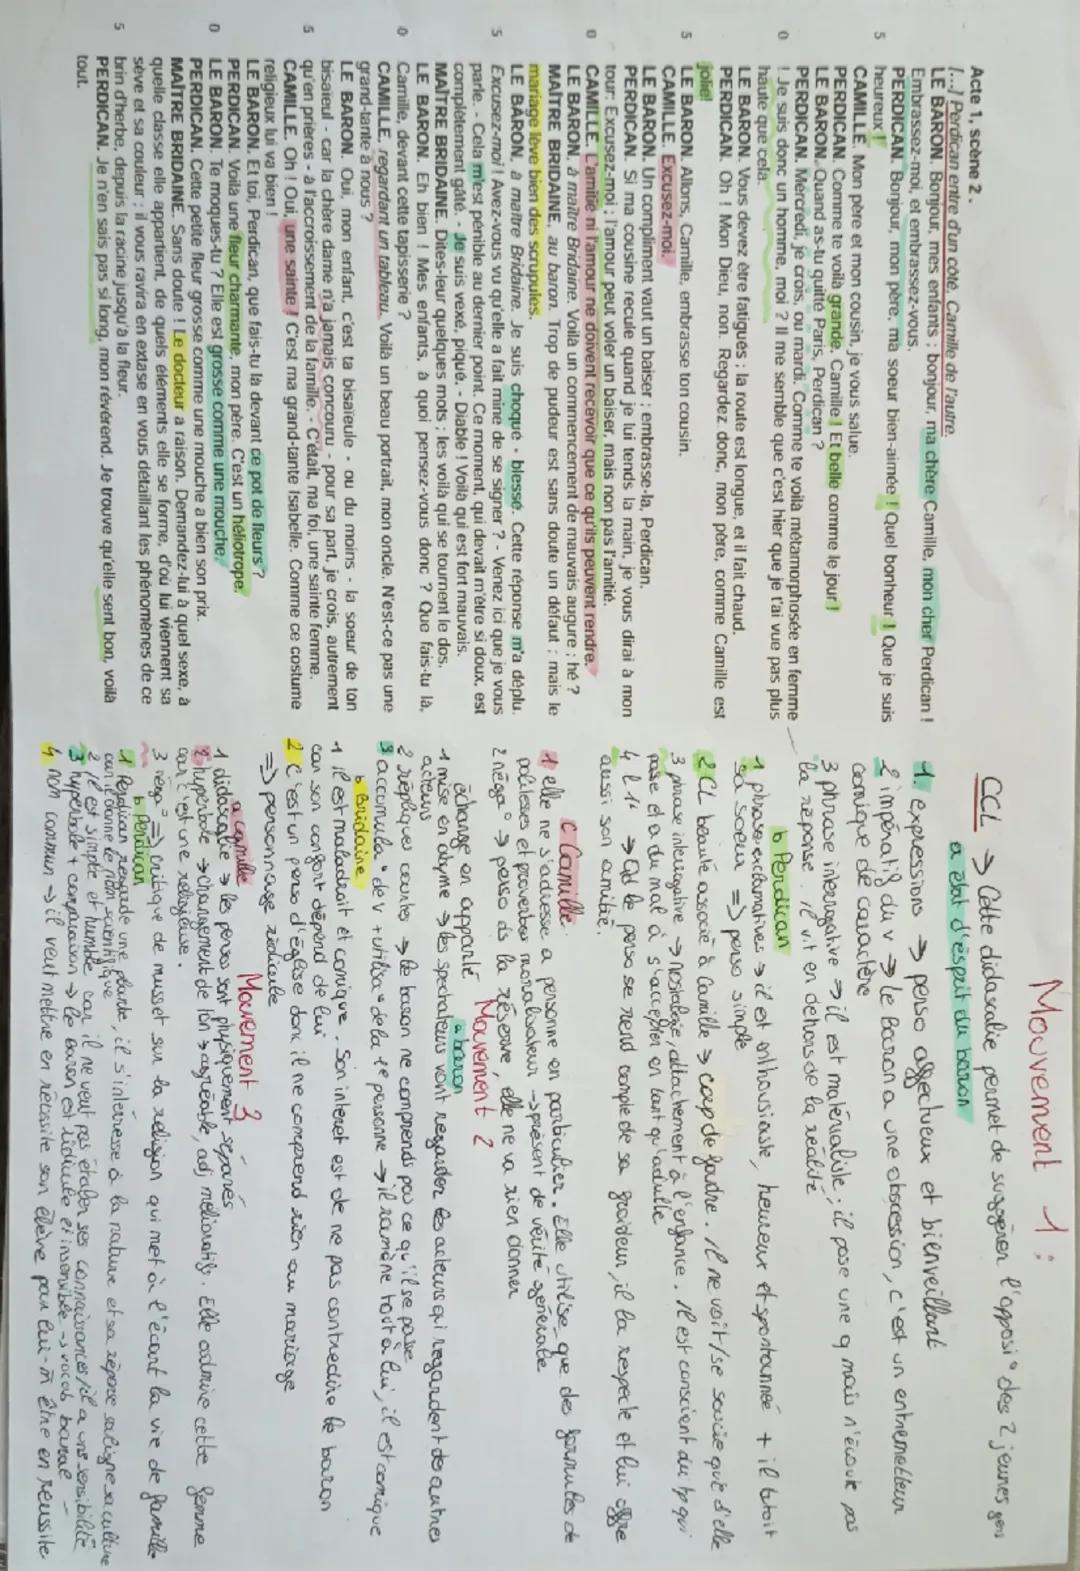 Acte 1, scène 2.
[...] Perdican entre d'un côté, Camille de l'autre.
LE BARON. Bonjour, mes enfants ; bonjour, ma chère Camille, mon cher Perdican !
Embrassez-moi, et embrassez-vous.
PERDICAN. Bonjour, mon père, ma soeur bien-aimée ! Quel bonheur ! Que je suis
5 heureux !
CAMILLE. Mon père et mon cousin, je vous salue.
PERDICAN. Comme te voilà grande, Camille ! Et belle comme le jour !
LE BARON. Quand as-tu quitté Paris, Perdican ?
PERDICAN. Mercredi, je crois, ou mardi. Comme te voilà métamorphosée en femme
0 ! Je suis donc un homme, moi ? Il me semble que c'est hier que je t'ai vue pas plus
haute que cela.
LE BARON. Vous devez être fatigués ; la route est longue, et il fait chaud.
PERDICAN. Oh ! Mon Dieu, non. Regardez donc, mon père, comme Camille est
jolie!
5 LE BARON. Allons, Camille, embrasse ton cousin.
CAMILLE. Excusez-moi.
LE BARON. Un compliment vaut un baiser ; embrasse-la, Perdican.
PERDICAN. Si ma cousine recule quand je lui tends la main, je vous dirai à mon
tour: Excusez-moi ; l'amour peut voler un baiser, mais non pas l'amitié.
0 CAMILLE. L'amitié ni l'amour ne doivent recevoir que ce qu'ils peuvent rendre.
LE BARON, à maître Bridaine. Voilà un commencement de mauvais augure ; hé ?
MAÎTRE BRIDAINE, au baron. Trop de pudeur est sans doute un défaut ; mais le
mariage lève bien des scrupules.
LE BARON, à maître Bridaine. Je suis choqué - blessé. Cette réponse m'a déplu.
5 Excusez-moi ! Avez-vous vu qu'elle a fait mine de se signer ? - Venez ici que je vous
parle. - Cela m'est pénible au dernier point. Ce moment, qui devait m'être si doux, est
complètement gâté. - Je suis vexé, piqué. - Diable ! Voilà qui est fort mauvais.
MAÎTRE BRIDAINE. Dites-leur quelques mots ; les voilà qui se tournent le dos.
LE BARON. Eh bien ! Mes enfants, à quoi pensez-vous donc ? Que fais-tu là,
0 Camille, devant cette tapisserie ?
CAMILLE, regardant un tableau. Voilà un beau portrait, mon oncle. N'est-ce pas une
grand-tante à nous ?
LE BARON. Oui, mon enfant, c'est ta bisaïeule - ou du moins - la soeur de ton
bisaïeul - car la chère dame n'a jamais concouru - pour sa part, je crois, autrement
5 qu'en prières - à l'accroissement de la famille. - C'était, ma foi, une sainte femme.
CAMILLE. Oh ! Oui, une sainte ! C'est ma grand-tante Isabelle. Comme ce costume
religieux lui va bien !
LE BARON. Et toi, Perdican, que fais-tu là devant ce pot de fleurs ?
PERDICAN. Voilà une fleur charmante, mon père. C'est un héliotrope.
0 LE BARON. Te moques-tu ? Elle est grosse comme une mouche.
PERDICAN. Cette petite fleur grosse comme une mouche a bien son prix.
MAÎTRE BRIDAINE. Sans doute ! Le docteur a raison. Demandez-lui à quel sexe, à
quelle classe elle appartient, de quels éléments elle se forme, d'où lui viennent sa
sève et sa couleur ; il vous ravira en extase en vous détaillant les phénomènes de ce
5 brin d'herbe, depuis la racine jusqu'à la fleur.
PERDICAN. Je n'en sais pas si long, mon révérend. Je trouve qu'elle sent bon, voilà
tout.
Mouvement 1 :
CCL → Cette didascalie permet de suggérer l'opposi° des 2 jeunes gens
a état d'esprit du baron
1. expressions → perso affectueux et bienveillant
2 impératif du v → le baron a une obscession, c'est un entremetteur
comique de caractère
3 phrase interrogative → il est matérialiste ; il pose une q mais n'écoute pas
la réponse. il vit en dehors de la réalité
b Perdican
1 phrase exclamatives → il est enthousiaste, heureux et spontanné + il tutoit
sa soeur => perso simple
2 CL beauté associé à Camille → coup de foudre. il ne voit/se soucie que d'elle
3 phrase interrogative → nostalgie, attachement à l'enfance. Il est conscient du tp qui
passe et a du mal à s'accepter en tant qu'adulte
4 l 1 → Qd le perso se rend compte de sa froideur, il la respecte et lui offre
aussi son amitié.
c Camille
1 elle ne s'adresse a personne en particulier. Elle utilise que des formules de
politesses et proverbes moralisateur → présent de vérité générale
2 néga° → perso ds la réserve, elle ne va rien donner
Mouvement 2
échange en apparté a baron
1 mise en abyme → les spectateurs vont regarder les acteurs qui regardent des autres
acteurs
2 répliques courtes → le baron ne comprends pas ce qu'il se passe
3 accumula° de v + utilisa° de la 1e personne → il ramène tout à lui, il est comique
b Bridaine
1 il est maladroit et comique. Son interet est de ne pas contredire le baron
car son confort dépend de lui
2 C'est un perso d'Église donc il ne comprend rien au mariage
=> personnage ridicule
Mouvement 3
a camille
1 didascalie → les persos sont physiquement séparés
2 hyperbole → changement de ton → agréable, adj mélioratifs. Elle admire cette femme
car c'est une religieuse.
3 néga° => critique de musset sur la religion qui met à l'écart la vie de famille
b perdican
1 Perdican regarde une plante, il s'intéresse à la nature et sa réponse souligne sa culture
car il donne le nom scientifique
2 il est simple et humble car il ne veut pas étaler ses connaissances, il a une sensibilité
3 hyperbole + comparaison → le baron est ridicule et insensible → vocab banal
4 nom commun → il veut mettre en réussite son élève pour lui-m être en réussite